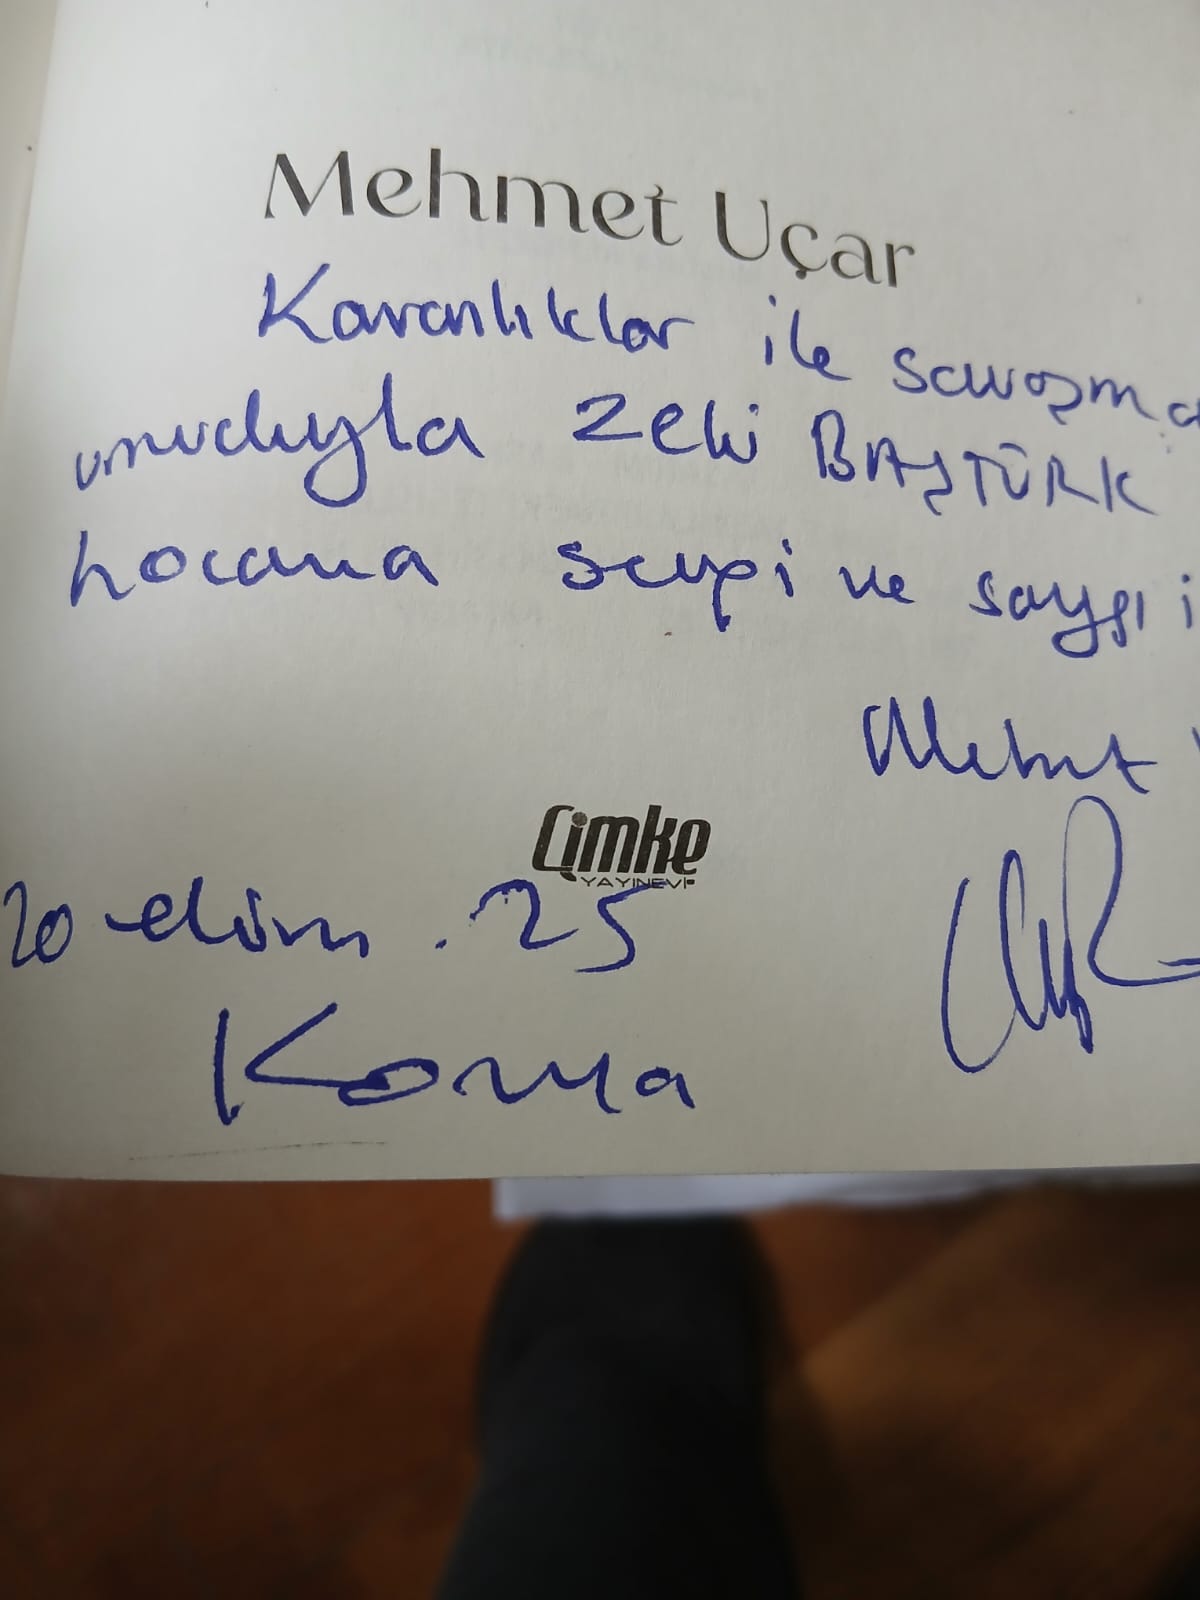 Mehmet Uçar
Karanlıklar ile savaşma
umuduyla Zeki BAŞTÜRK
hocama sevgi ve saygı i
Mehmet
Çimke
YAYINEVİ
20 ekim . 25
Konya